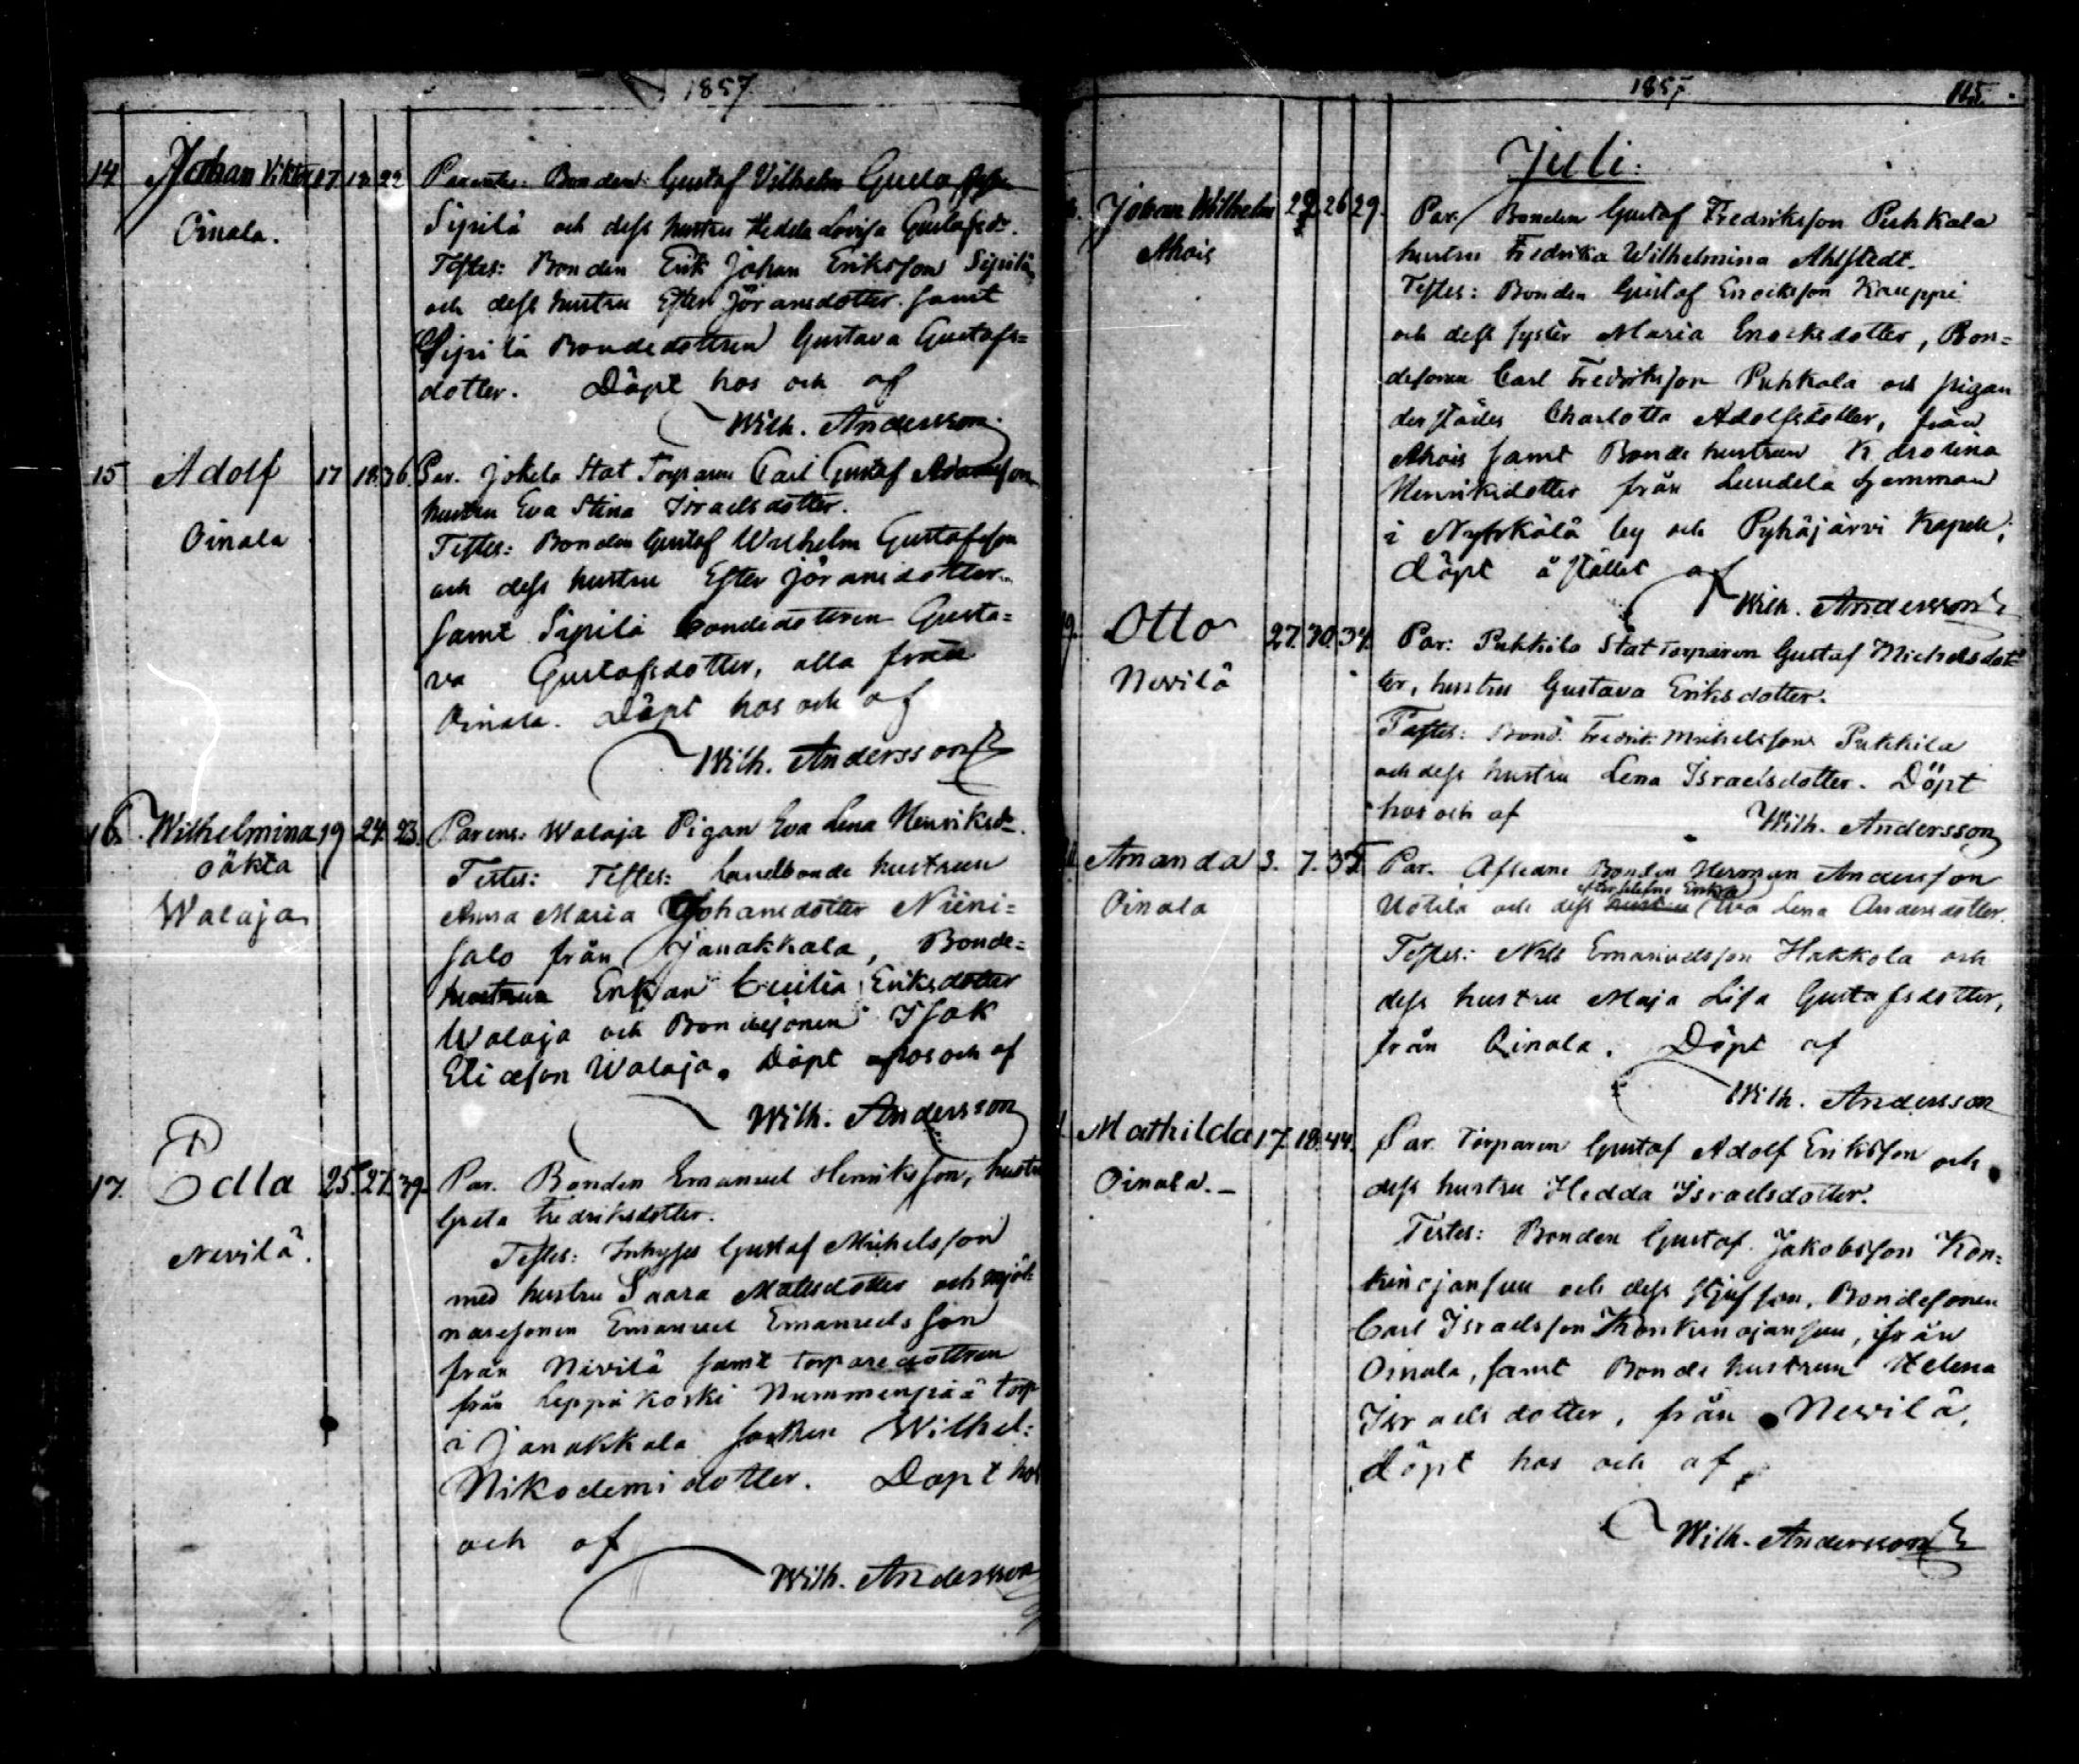 1857
14 Johan Viktor 17. 18. 22 Parentes: Bonden Gustaf Vilhelm Gustafsson
Oinala. Sipilä och dess hustru Hedda Lovisa Gustafsdr.
Testes: Bonden Erik Johan Eriksson Sipilä
och dess hustru Ester Jöransdotter samt
Sipilä Bondedottren Gustava Gustafs=
dotter. Döpt hos och af
Wilh. Andersson.
15 Adolf 17 18. 36. Par. Jokela Stat Torparen Carl Gustaf Adamsson
hustru Eva Stina Israelsdotter.
Oinala Testes: Bonden Gustaf Wilhelm Gustafsson
och dess hustru Ester Jöransdotter
samt Sipilä bondedottren Gusta=
va Gustafsdotter, alla från
Oinala. Döpt hos och af
Wilh. Andersson
16. Wilhelmina 19 24. 23. Parens: Walaja Pigan Eva Lena Henriksdr.
oäkta Testes: Testes: Landbonde hustrun
Walaja Anna Maria Johansdotter Niini=
salo från Janakkala, Bonde=
hustrun Enkan Cecilia Eriksdotter
Walaja och Bondesonen Isak
Eliæson Walaja. Döpt hos och af
Wilh. Andersson
17. Edla 25. 27. 39. Par. Bonden Emanuel Henriksson, hustru
Greta Fredriksdotter.
Nevilä. Testes: Inhyses Gustaf Michelsson
med hustru Saara Matlsdotter och mjöl
naresonen Emanuel Emanuelsson
från Nevilä samt torparedottren
från Leppäkoski Nummenpää torp
i Janakkala socken Wilhel:
Nikodemidotter. Döpt hos
och af
Wilh. Andersson
1857 115.
Juli:
Johan Wilhelm 22. 26 29. Par. Bonden Gustaf Fredriksson Puhkala
Ahois hustru Fredrika Wilhelmina Ahlstedt.
Testes: Bonden Gustaf Enocksson Kauppi
och dess syster Maria Enocksdotter, Bon=
desonen Carl Fredriksson Puhkala och pigan
derstädes Charlotta Adolfsdotter, från
Ahois samt Bonde hustrun Karolina
Henriksdotter från Lundela hemman
i by och Pyhäjärvi Kapell;
döpt å stället af
Wilh. Andersson
Otto 27. 30. 34. Par: Pukkila Stat Torparen Gustaf Michelsdot
Nevilä ter, hustru Gustava Eriksdotter.
Testes: Bond. Fredrik Michelsson Pukkila
och dess hustru Lena Israelsdotter. Döpt
hos och af Wilh. Andersson
Amanda 3. 7. 35 Par. Afledne Bonden Herman Andersson
efterlefne Enka
Oinala Uotila och dess hustru Eva Lena Andersdotter.
Testes: Nils Emanuelsson Hakkola och
dess hustru Maja Lisa Gustafsdotter,
från Oinala. Döpt af
Wilh. Andersson
Mathilda 17. 18. 44. Par. Torparen Gustaf Adolf Eriksson och
Oinala.— dess hustru Hedda Israelsdotter.
Testes: Bonden Gustaf Jakobsson Kon=
kinojansuu och dess stjufson, Bondesonen
Carl Israelsson Konkinojansuu, från
Oinala, samt Bonde hustrun Helena
Israelsdotter, från Nevilä.
döpt hos och af
Wilh. Andersson